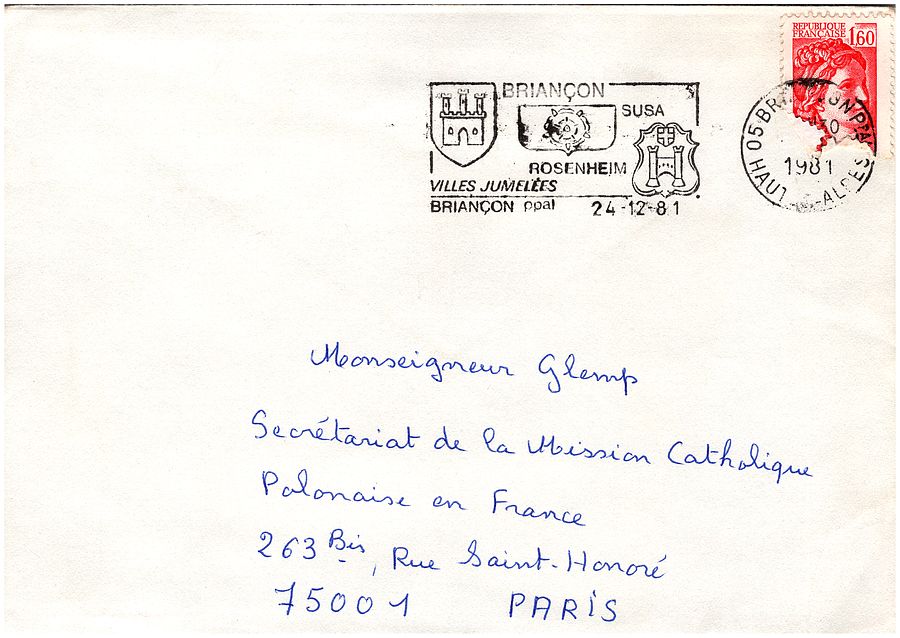 REPUBLIQUE
FRANCAISE 1,60
BRIANÇON
SUSA
ROSENHEIM
VILLES JUMELÉES
BRIANÇON ppal 24-12-81
05 PAL
1981
HAUT -ALPES
Monseigneur Glemp
Secrétariat de la Mission Catholique
Polonaise en France
263 Bis, Rue Saint-Honoré
75001 PARIS